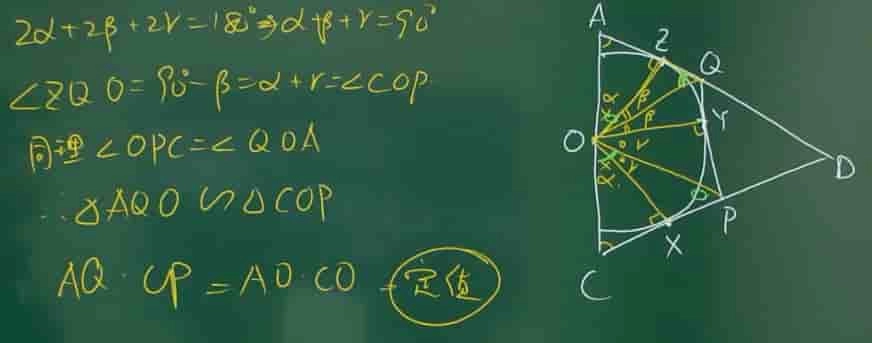 2α+2β+2γ=180°⇒α+β+γ=90°
∠ZQO=90°-β=α+γ=∠COP
同理∠OPC=∠QOA
∴△AQO∽△COP
AQ·CP=AO·CO=定值
A
Z
Q
α
β
β
Y
O
γ
γ
α
D
P
X
C